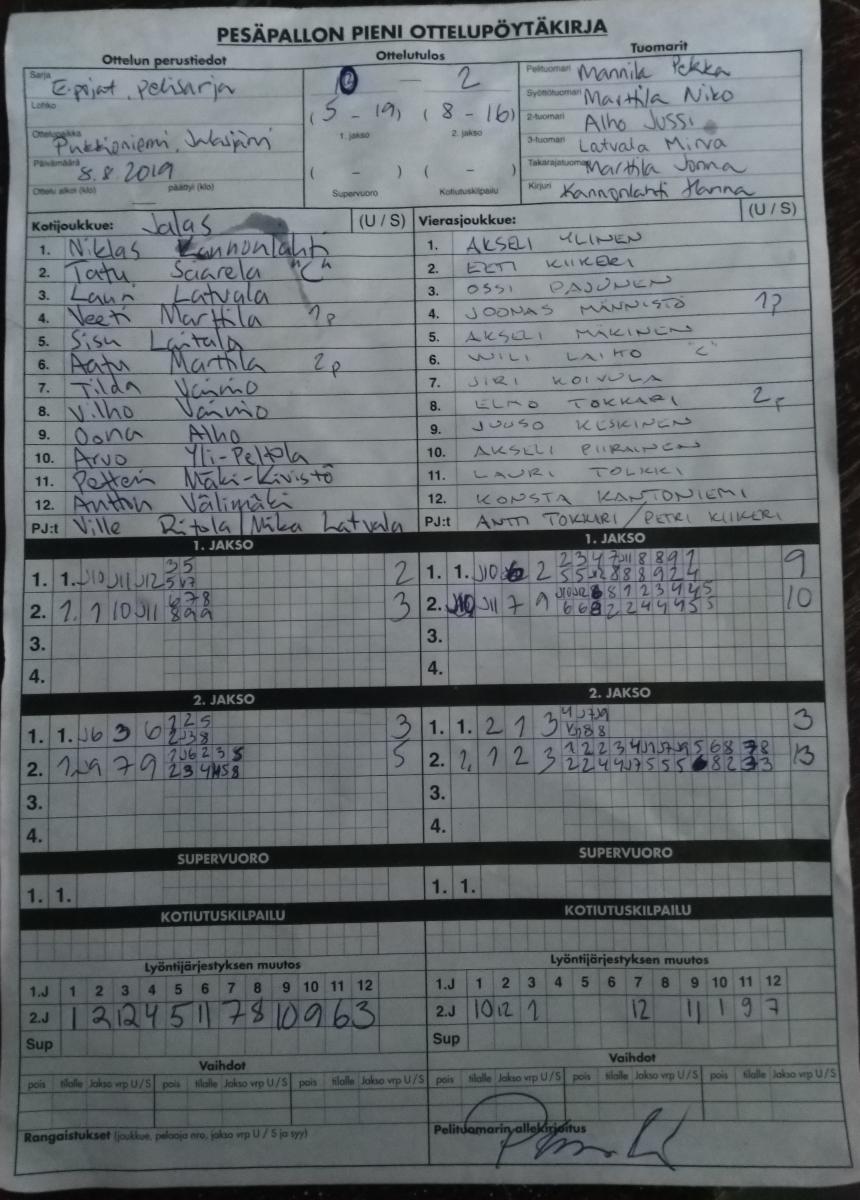 PESÄPALLON PIENI OTTELUPÖYTÄKIRJA
Ottelun perustiedot
Sarja E-pojat, pelisarja
Lohko
Ottelupaikka
Päivämäärä 8.8.2019
Ottelu alkoi (klo) päättyi (klo)
Ottelutulos
0 — 2
(5 - 19) (8 - 16)
1. jakso 2. jakso
( - ) ( - )
Supervuoro Kotiutuskilpailu
Tuomarit
Pelituomari Mannila Pekka
Syöttötuomari Marttila Niko
2-tuomari Alho Jussi
3-tuomari Latvala Mirva
Takarajatuomari Marttila Jonna
Kirjuri Kannonlahti Hanna
Kotijoukkue: Jalas (U / S)
1. Niklas Kannonlahti
2. Tatu Saarela "C"
3. Lauri Latvala
4. Veeti Marttila 1p
5. Sisu Laitala
6. Aatu Marttila 2p
7. Tilda Väiniö
8. Vilho Väiniö
9. Oona Alho
10. Arvo Yli-Peltola
11. Petteri Mäki-Kivistö
12. Anttu Välimäki
PJ:t Ville Ritola / Mika Latvala
Vierasjoukkue: (U / S)
1. AKSELI YLINEN
2. EETI KIIKERI
3. OSSI PAJUNEN
4. JOONAS MÄNNISTÖ 1p
5. AKSELI MÄKINEN
6. WILI LAIHO "C"
7. JIRI KOIVULA
8. ELMO TOKKARI 2p
9. JUUSO KESKINEN
10. AKSELI PIIRAINEN
11. LAURI TOLKKI
12. KONSTA KANTONIEMI
PJ:t ANTTI TOKKARI / PETRI KIIKERI
1. JAKSO
1. 1. J10 J11 J12 2
35
2. 1. 1 10 J11 3
678
899
3.
4.
1. JAKSO
1. 1. J10 2 9
2. J10 J11 7 9 10
3.
4.
2. JAKSO
1. 1. J6 3 6 3
2. 1. J9 7 9 5
3.
4.
2. JAKSO
1. 1. 2 1 3 3
2. 1, 1 2 3 13
3.
4.
SUPERVUORO
1. 1.
SUPERVUORO
1. 1.
KOTIUTUSKILPAILU
KOTIUTUSKILPAILU
Lyöntijärjestyksen muutos
1.J 1 2 3 4 5 6 7 8 9 10 11 12
2.J 1 2 12 4 5 11 7 8 10 9 6 3
Sup
Lyöntijärjestyksen muutos
1.J 1 2 3 4 6 7 8 9 10 11 12
2.J 10 12 1 12 11 1 9 7
Sup
Vaihdot
pois tilalle Jakso vrp U / S pois tilalle Jakso vrp U / S pois tilalle Jakso vrp U / S
Vaihdot
pois tilalle Jakso vrp U / S pois tilalle Jakso vrp U / S pois tilalle Jakso vrp U / S
Rangaistukset (joukkue, pelaaja nro, jakso vrp U / S ja syy)
Pelituomarin allekirjoitus